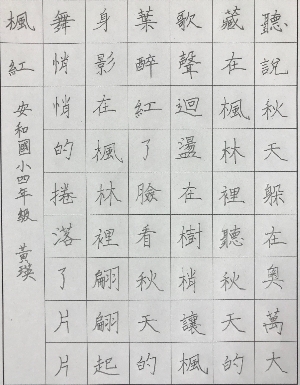 聽說秋天躲在奧萬大
藏在楓林裡聽秋天的
歌聲迴盪在樹梢讓楓
葉醉紅了臉看秋天的
身影在楓林裡翩翩起
舞悄悄的捲落了片片
楓紅 安和國小四年級 黃瑛